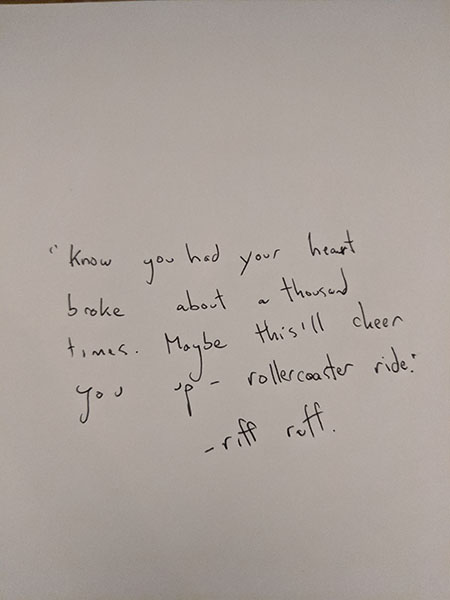 "Know you had your heart
broke about a thousand
times. Maybe this'll cheer
you up - rollercoaster ride."
-riff raff.